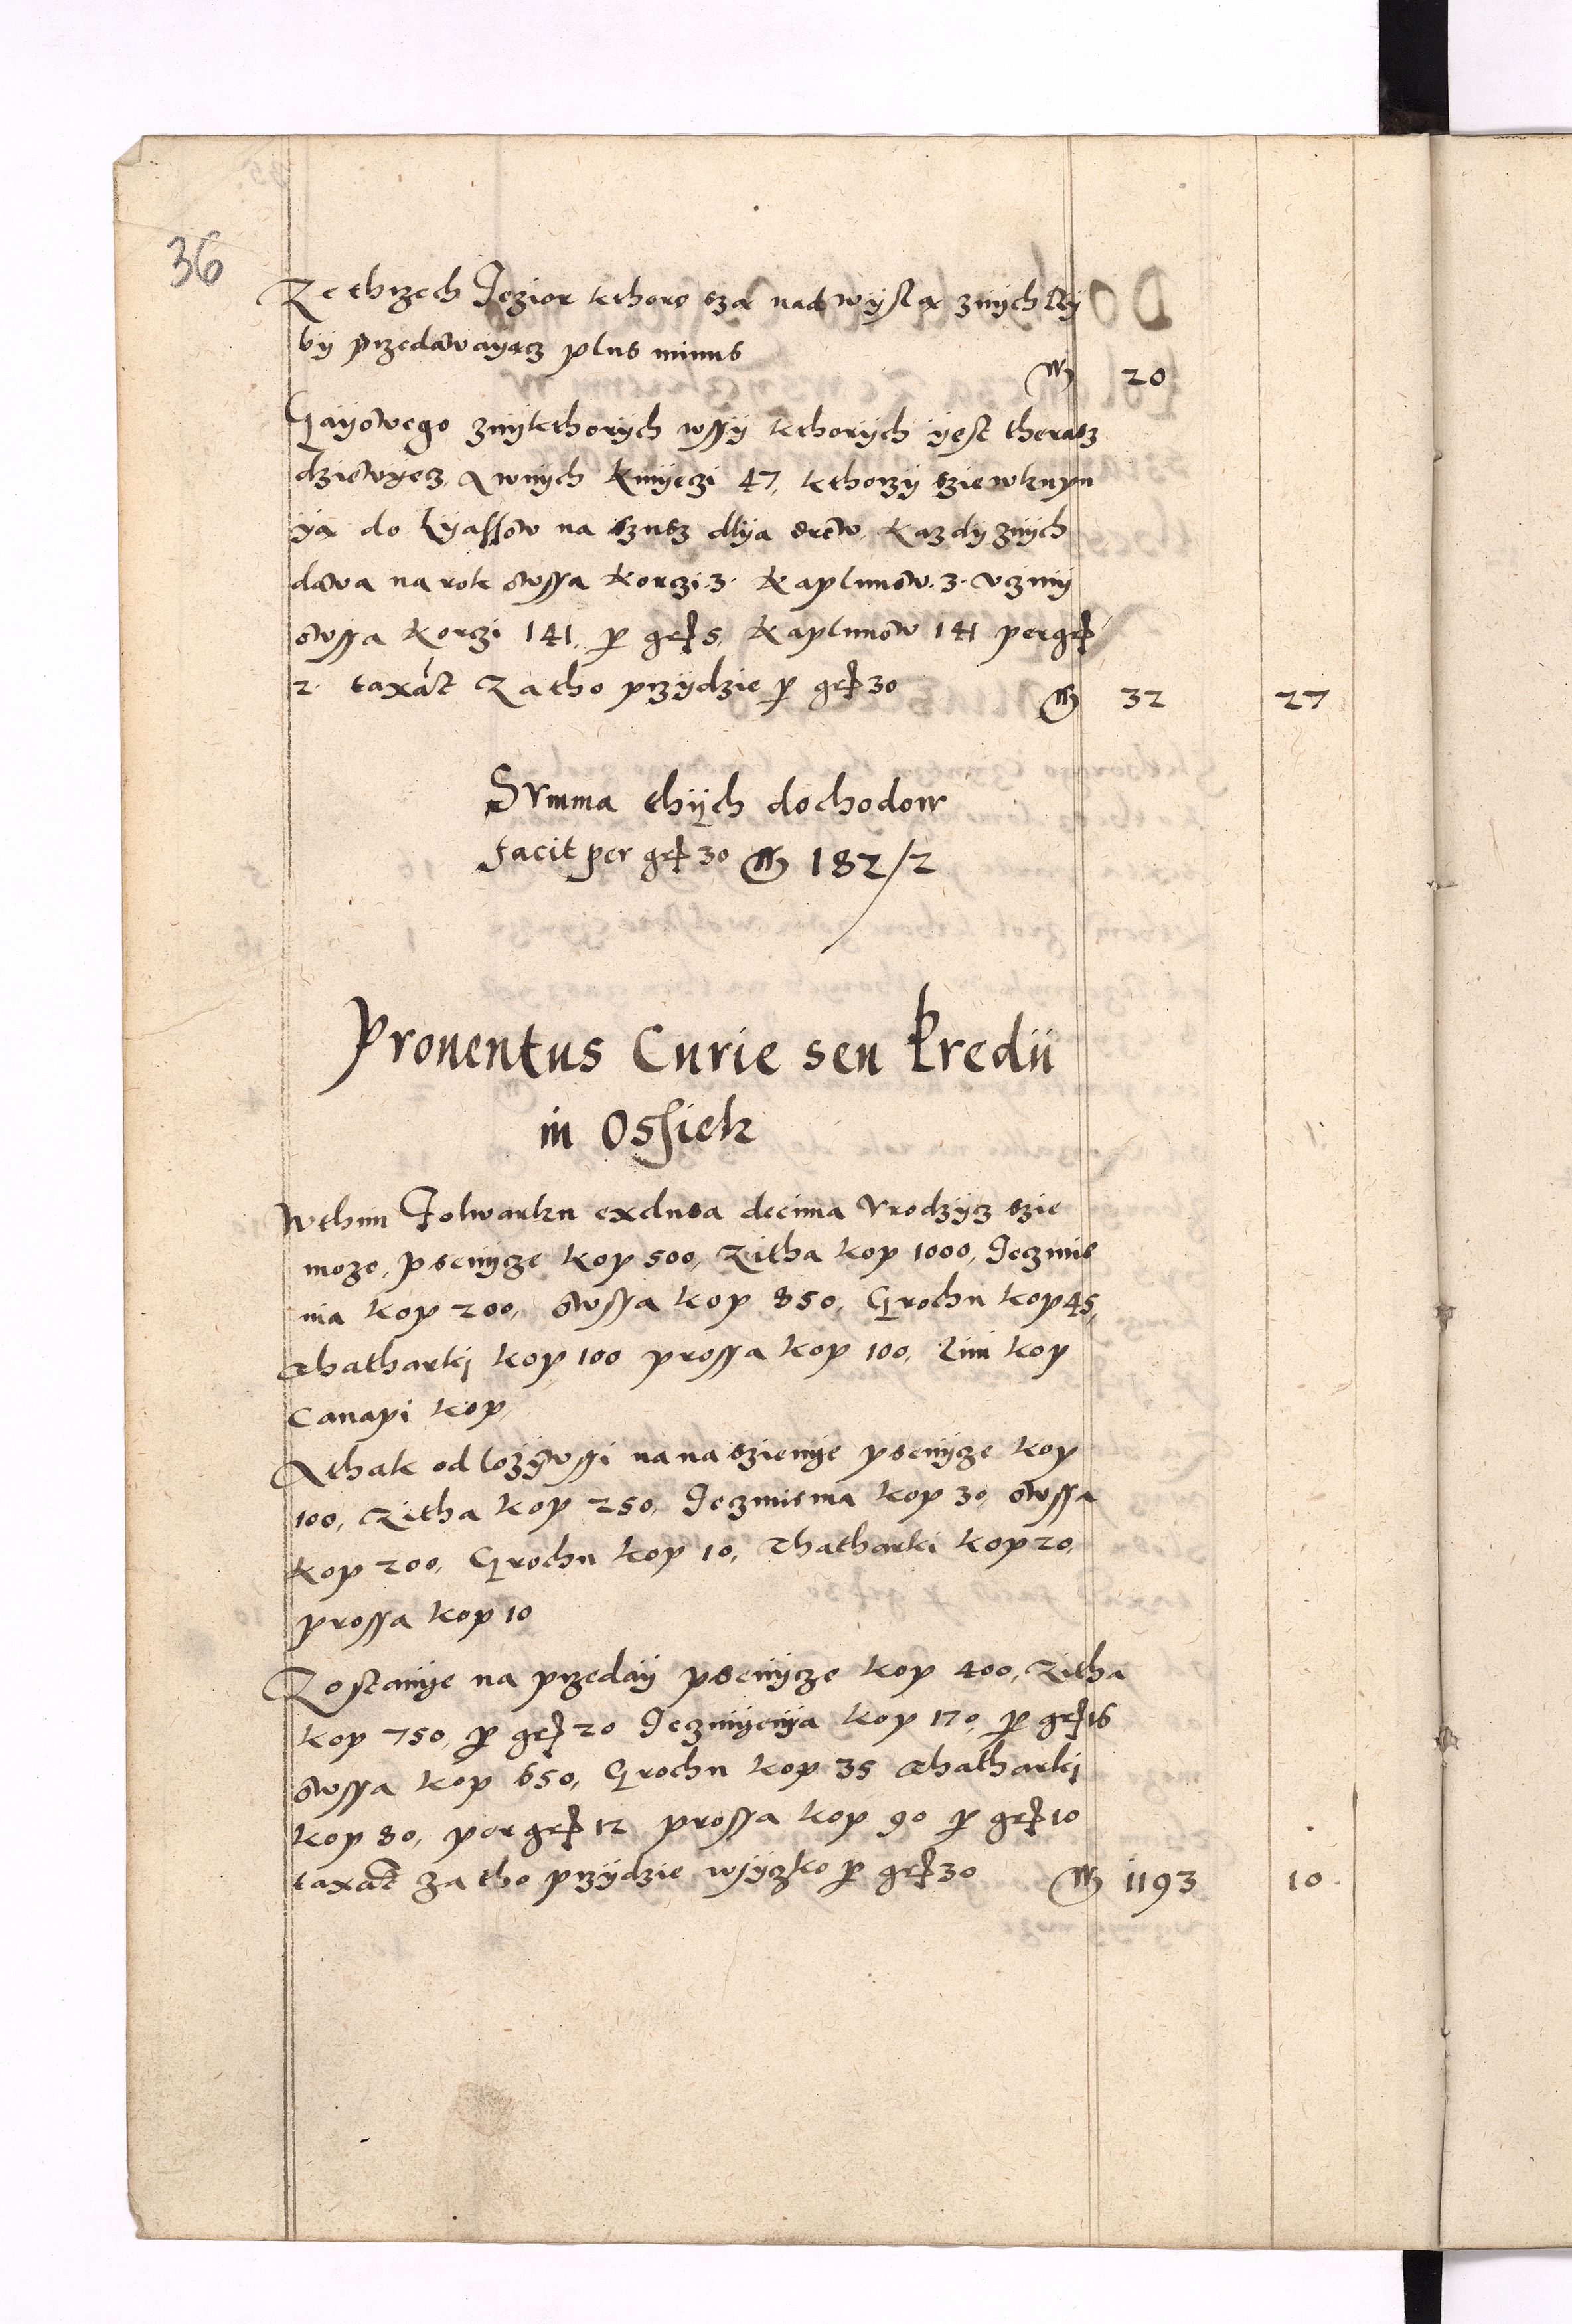 36
Ze thrzech Jezior kthore sza nad wyslą znych Ry
by przedawayącz plus minus
m 20
Gayowego znykthorych wssy kthorych yest therasz
dziewyecz, A wnych kmyeczi 47, kthorzy szie wkupu
yą do lyassow na szusz dlya drew, kazdy znych
dawa na rok owssa korczi 3. kaplunow. 3. vczini
owssa korczi 141, per grß 5, kaplunow 141 per grß
2. taxat Za tho przydzie per grß 30 m 32 27
Svmma thych dochodow
facit per grß 30 m 182/2
Prouentus Curie seu Predii
in Ossiek
W thim Folwarku exclusa decima Vrodzycz szie
moze, psenycze kop 500, Zitha kop 1000, Jeczmie
nia kop 200, owssa kop 850, Grochu kop 45,
Thatharki kop 100 prossa kop 100, Lini kop
Canapi kop
A thak odlozywssi na naszienye psenycze kop
100, Zitha kop 250, Jeczmiena kop 30, owssa
kop 200, Grochu kop 10, Thatharki kop 20,
prossa kop 10
Zostanye na przeday psenycze kop 400, Zitha
kop 750, per grß 20 Jeczmyenya kop 170, per grß 16
owssa kop 650, Grochu kop 35 Thatharki
kop 80, per grß 12 prossa kop 90 per grß 10
taxat za tho przydzie wsyzko per grß 30 m 1193 10